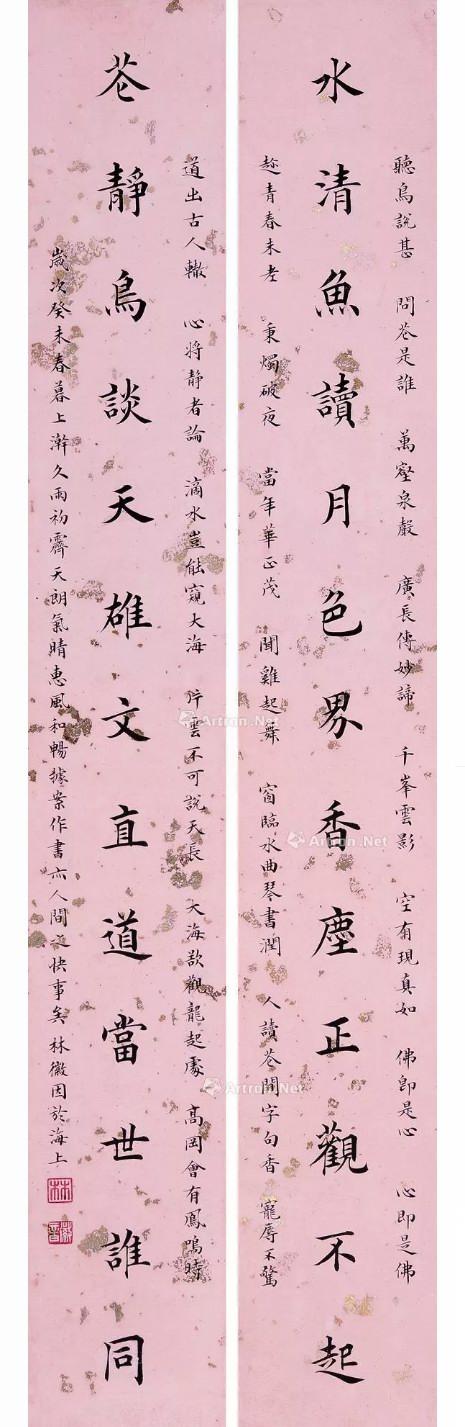 聽鳥說甚 問花是誰 萬壑泉聲 廣長傳妙諦 千峯雲影 空有現真如 佛即是心 心即是佛
水清魚讀月色界香塵正觀不起
趁青春未老 秉燭破夜 當年華正茂 聞雞起舞 窗臨水曲琴書潤 人讀花間字句香 寵辱不驚
道出古人轍 心將静者論 滴水豈能窺大海 片雲不可說天長 大海欲觀龍起處 高岡會有鳳鳴時
花靜鳥談天雄文直道當世誰同
歲次癸未春暮上澣久雨初霽天朗氣晴惠風和暢據案作書亦人間快事矣 林徽因於海上
林
徽音
Artron.Net
Artron.Net
Artron.Net